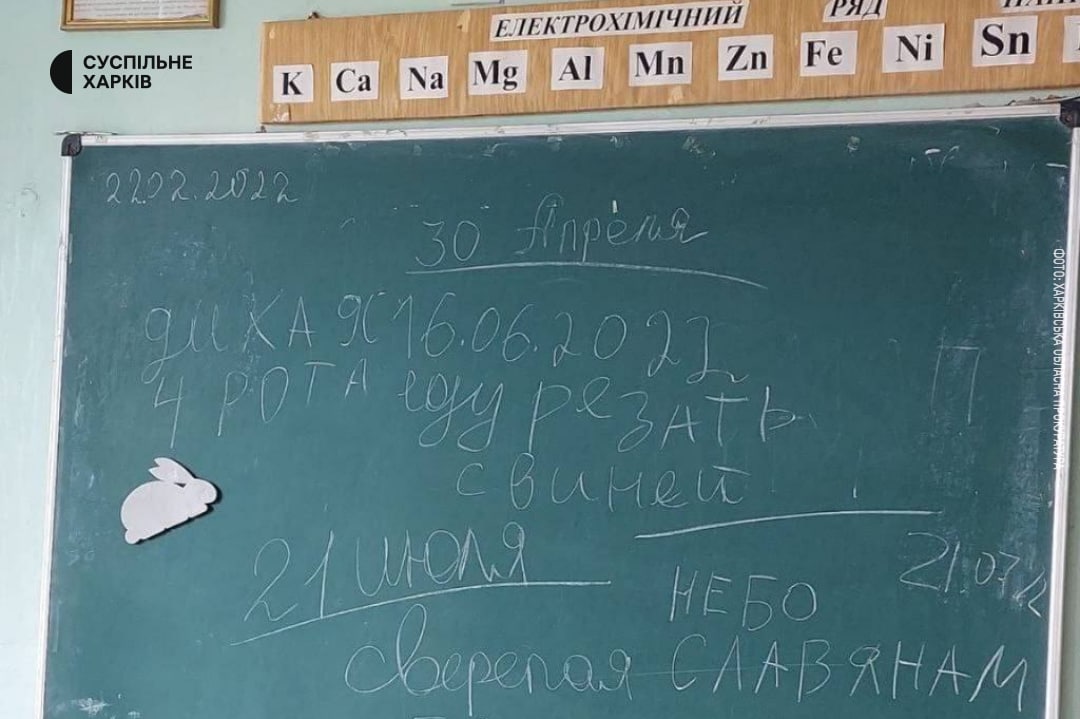 СУСПІЛЬНЕ
ХАРКІВ
ЕЛЕКТРОХІМІЧНИЙ РЯД
K Ca Na Mg Al Mn Zn Fe Ni Sn
22.02.2022
30 Апреля
дИКАЯ 16.06.2022
4 РОТА еду реЗАТЬ
свиней
21 июля
21.07.22
НЕБО
сверепая СЛАВЯНАМ
ФОТО: ХАРКІВСЬКА ОБЛАСНА ПРОКУРАТУРА